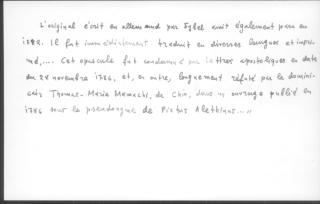 L'original écrit en allemand par Eybel avait également paru en
1782. Il fut immédiatement traduit en diverses langues et impri-
mé,.... Cet opuscule fut condamné par lettres apostoliques en date
du 28 novembre 1786, et, en outre, longuement réfuté par le domini-
cain Thomas-Marie Mamachi, de Chio, dans un ouvrage publié en
1786 sous le pseudonyme de Pistus Alethinus....."